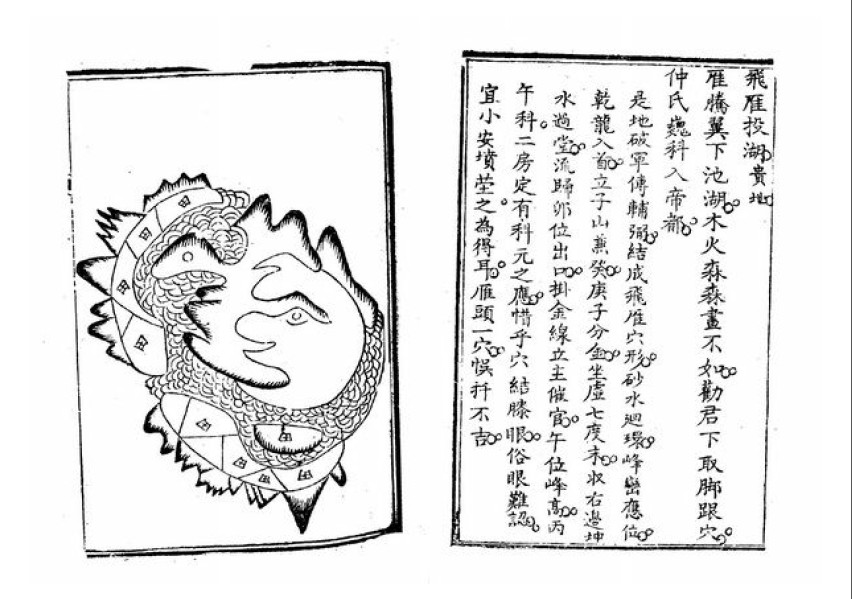 飛雁投湖貴地
雁騰翼下池湖木火森森畫不如勸君下取脚跟穴
仲氏巍科入帝都
是地破軍傳輔弼結成飛雁穴形砂水迴環峰巒應位
乾龍入首立子山兼癸庚子分金坐虛七度末收右邊坤
水過堂流歸卯位出口掛金線立主催官午位峰高丙
午科二房定有科元之應惜乎穴結膝眼俗眼難認
宜小安墳塋之為得耳雁頭一穴悞扦不吉
田
田
田
田
田
田
田
田
田